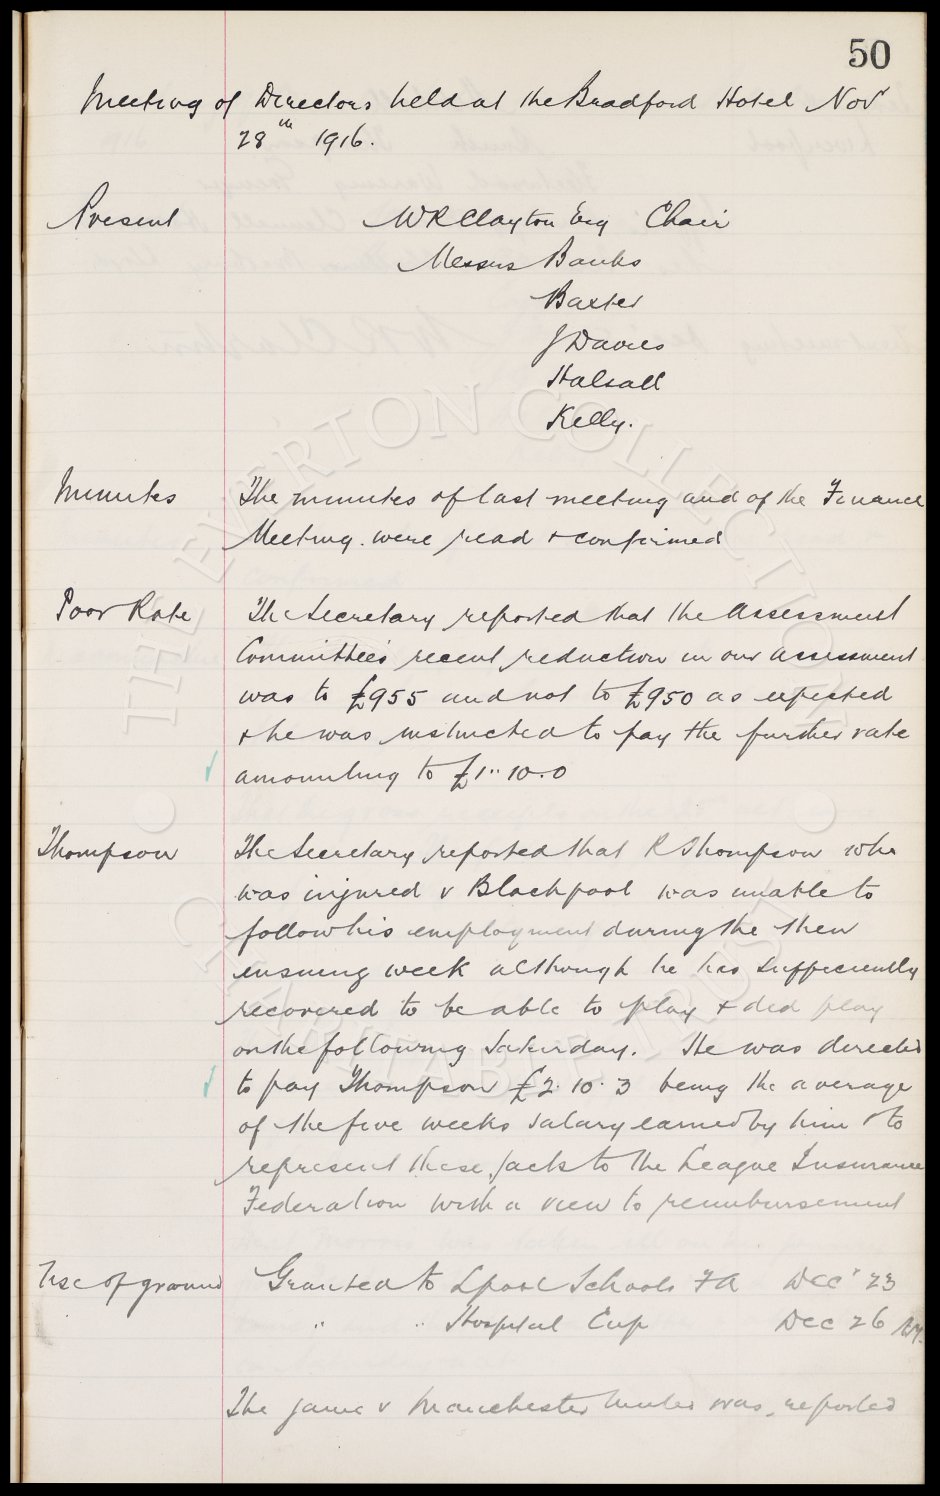 50
Meeting of Directors held at the Bradford Hotel Nov
28th 1916.
Present W R Clayton Esq Chair
Messrs Banks
Baxter
J Davies
Halsall
Kelly.
Minutes The minutes of last meeting and of the Finance
Meeting were read & confirmed
Poor Rate The Secretary reported that the Assessment
Committees recent reduction in our assessment
was to £955 and not to £950 as expected
& he was instructed to pay the further rate
amounting to £1.10.0
Thompson The Secretary reported that R Thompson who
was injured v Blackpool was unable to
follow his employment during the then
ensuing week although he has sufficiently
recovered to be able to play & did play
on the following Saturday. He was directed
to pay Thompson £2.10.3 being the average
of the five weeks salary earned by him & to
represent these facts to the League Insurance
Federation with a view to reimbursement
Use of ground Granted to Lpool Schools FA Dec 23
" " Hospital Cup Dec 26
The game v Manchester United was reported
THE EVERTON COLLECTION
CHARITABLE TRUST